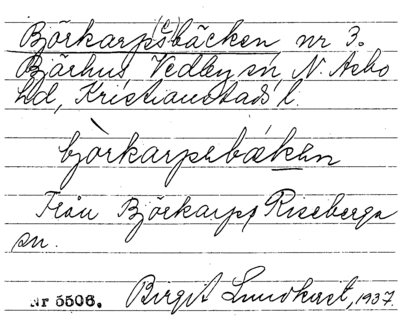 Björkarp(s)bäcken nr 3.
Bjärhus, Vedby sn, N. Åsbo
hd, Kristianstads l.
bjòrkarpsbäken
Från Björkarp, Riseberga
sn.
Nr 5506. Birgit Lundkvist, 1937.